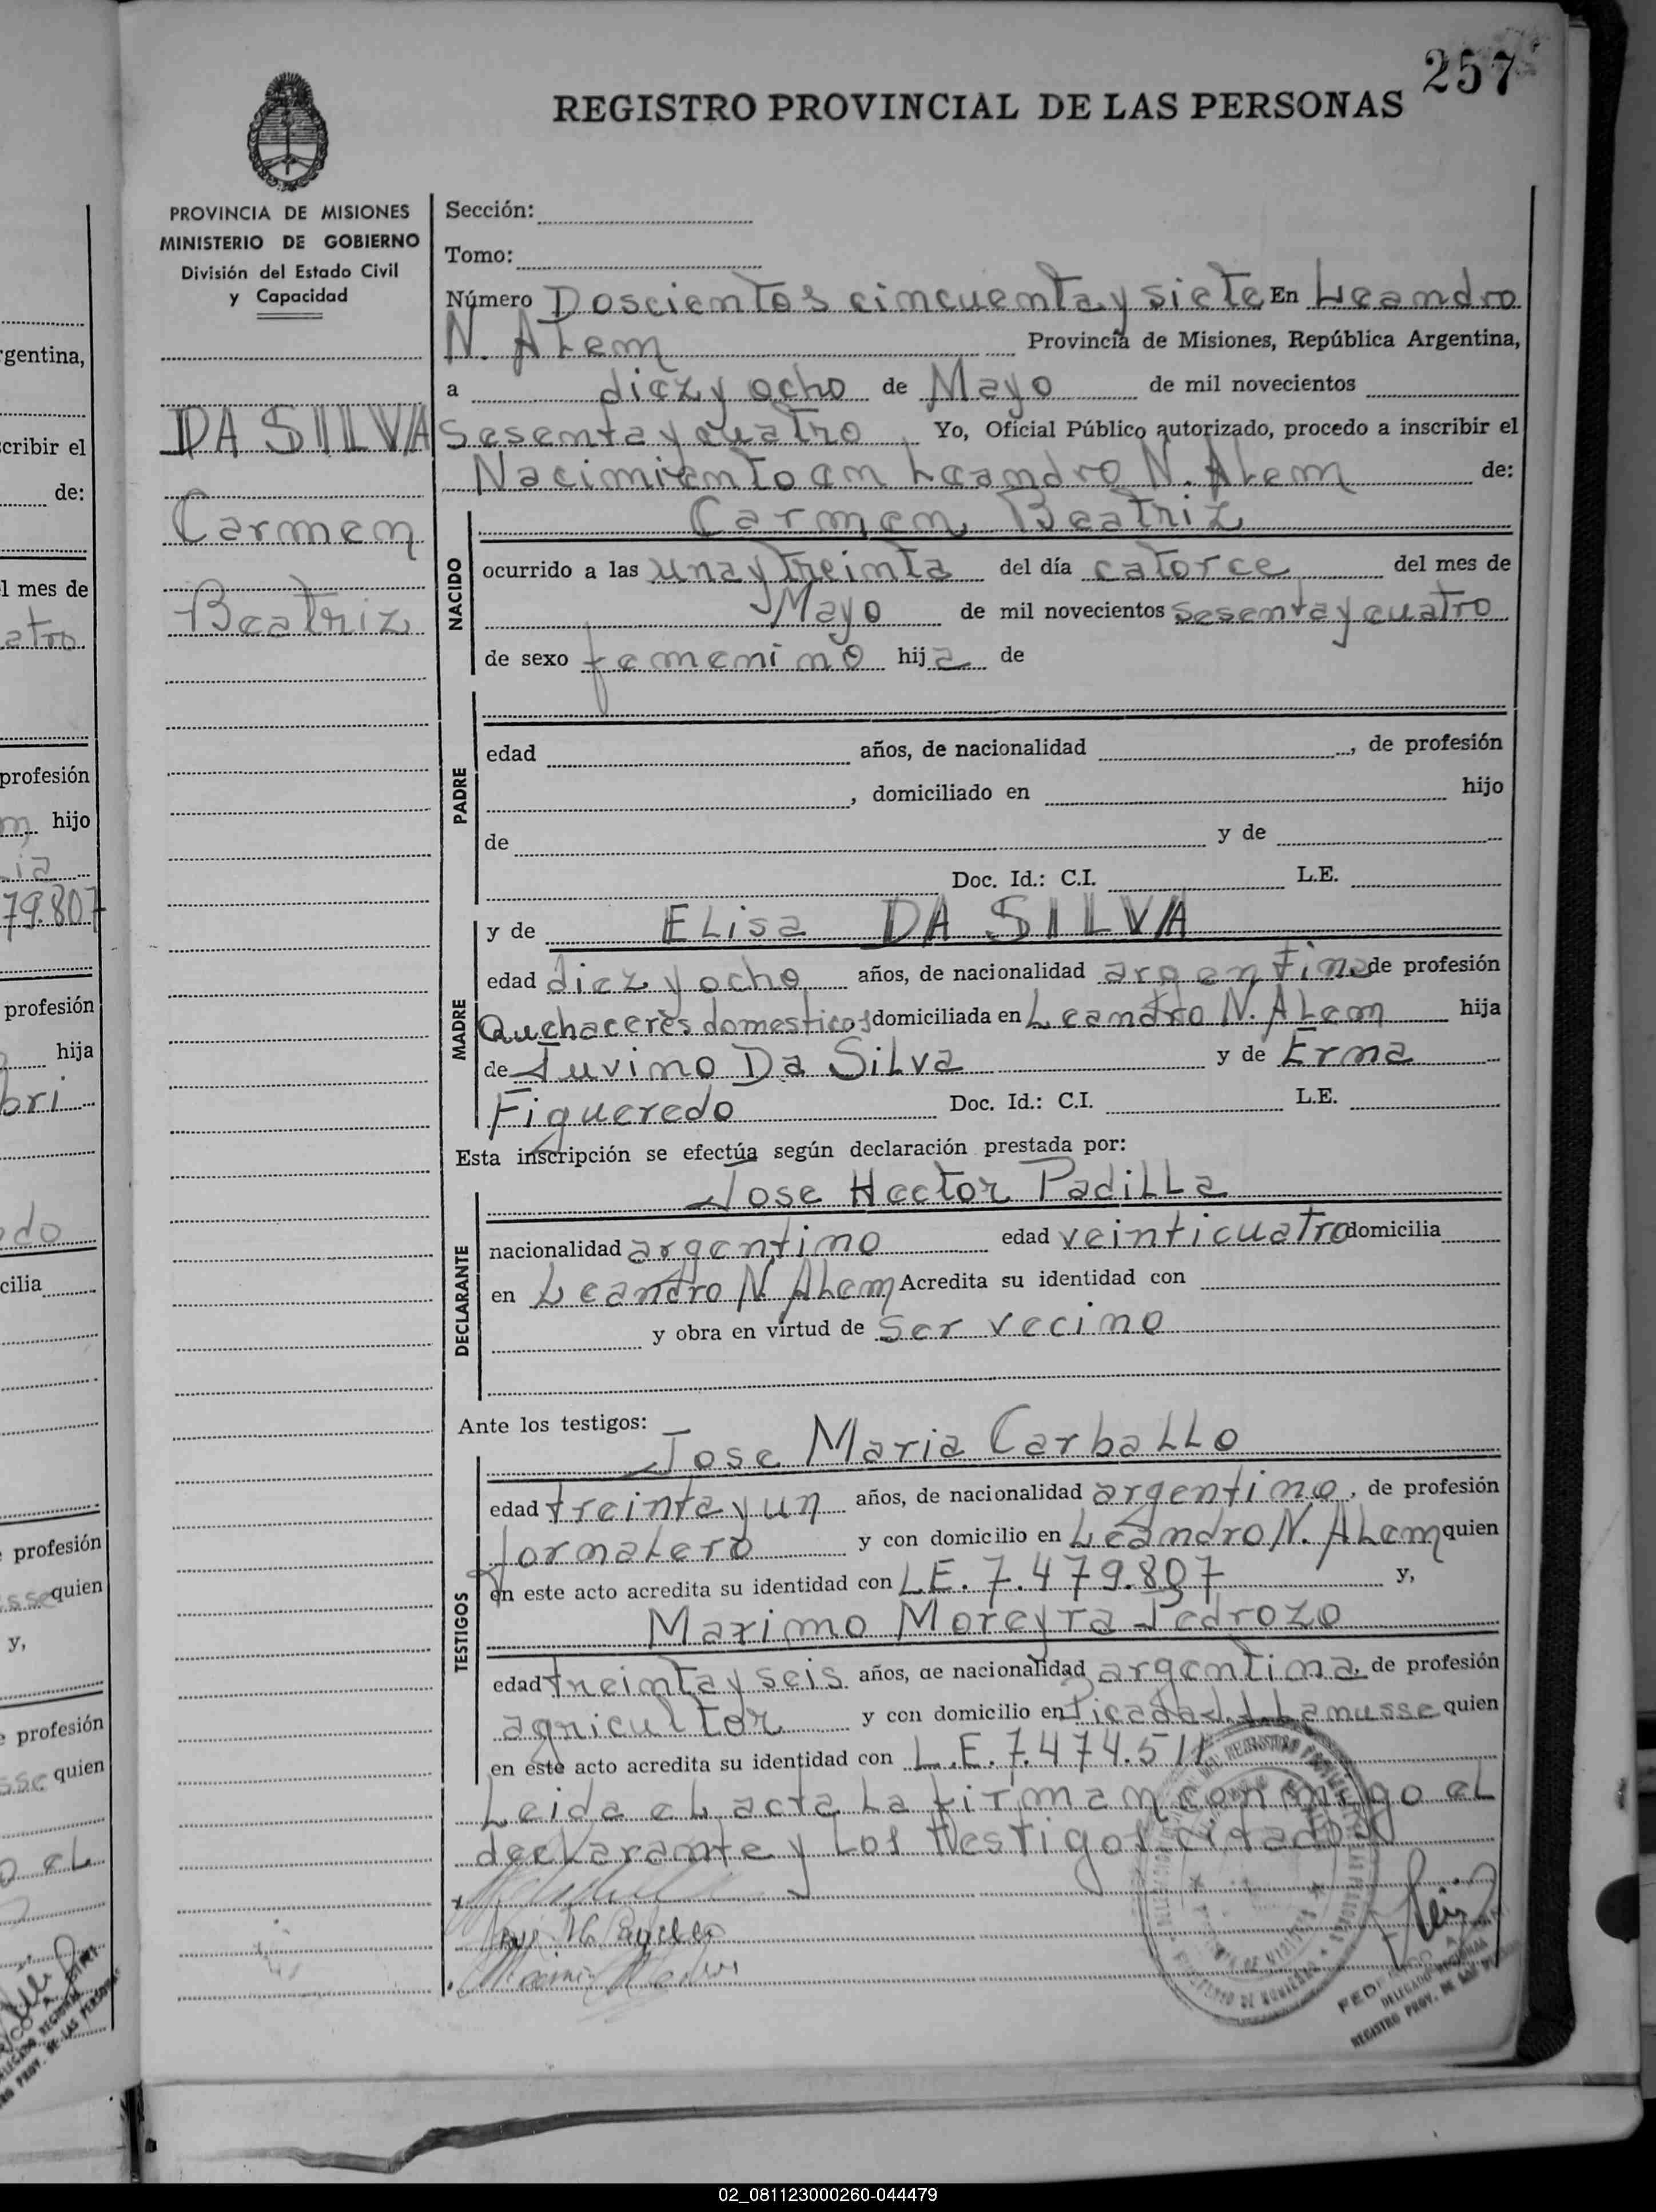 257
REGISTRO PROVINCIAL DE LAS PERSONAS
PROVINCIA DE MISIONES
MINISTERIO DE GOBIERNO
División del Estado Civil
y Capacidad
DA SILVA
Carmen
Beatriz
Sección:
Tomo:
Número Doscientos cincuenta y siete En Leandro
N. ALem Provincia de Misiones, República Argentina,
a diez y ocho de Mayo de mil novecientos
sesenta y cuatro, Yo, Oficial Público autorizado, procedo a inscribir el
Nacimiento en Leandro N. ALem de:
Carmen Beatriz
NACIDO
ocurrido a las una y treinta del día catorce del mes de
Mayo de mil novecientos sesenta y cuatro
de sexo femenino hija de
PADRE
edad años, de nacionalidad , de profesión
, domiciliado en hijo
de y de
Doc. Id.: C.I. L.E.
MADRE
y de ELisa DA SILVA
edad diez y ocho años, de nacionalidad argentina de profesión
Quehaceres domesticos domiciliada en Leandro N. ALem hija
de Juvino Da SiLva y de Erma
Figueredo Doc. Id.: C.I. L.E.
Esta inscripción se efectúa según declaración prestada por:
DECLARANTE
Jose Hector PadiLLa
nacionalidad argentino edad veinticuatro domicilia
en Leandro N. ALem Acredita su identidad con
y obra en virtud de ser vecino
Ante los testigos:
TESTIGOS
Jose Maria CarbaLLo
edad treinta y un años, de nacionalidad argentino, de profesión
jornaLero y con domicilio en Leandro N. ALem quien
en este acto acredita su identidad con L.E. 7.479.807 y,
Maximo Moreyra Pedrozo
edad treinta y seis años, de nacionalidad argentina, de profesión
agricultor y con domicilio en Picada L. Lanusse quien
en este acto acredita su identidad con L.E. 7.474.511
Leida eL acta La firman conmigo eL
decLarante y Los testigos citados
DELEGADO REGIONAL
REGISTRO PROV. DE LAS
gentina,
cribir el
de:
l mes de
atro
profesión
hijo
ia
79.807
profesión
hija
bri
edo
cilia
profesión
sse quien
y,
profesión
sse quien
o eL
02_081123000260-044479